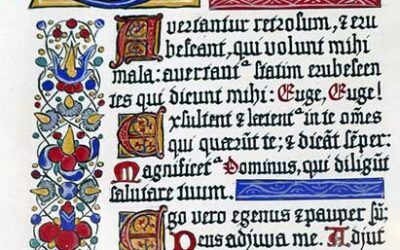 Avertantur retrosum, & eru
bescant, qui volunt mihi
mala: avertantᵃ statim erubescen
tes qui dicunt mihi: Euge, Euge!
Exsultent & letentᵃ in te om̄es
qui quærūt te; & dicāt sēper:
Magnificetᵃ Dominus, qui diligūt
salutare tuum.
Ego vero egenus & pauper sū:
Deus adjuva me. Adjut